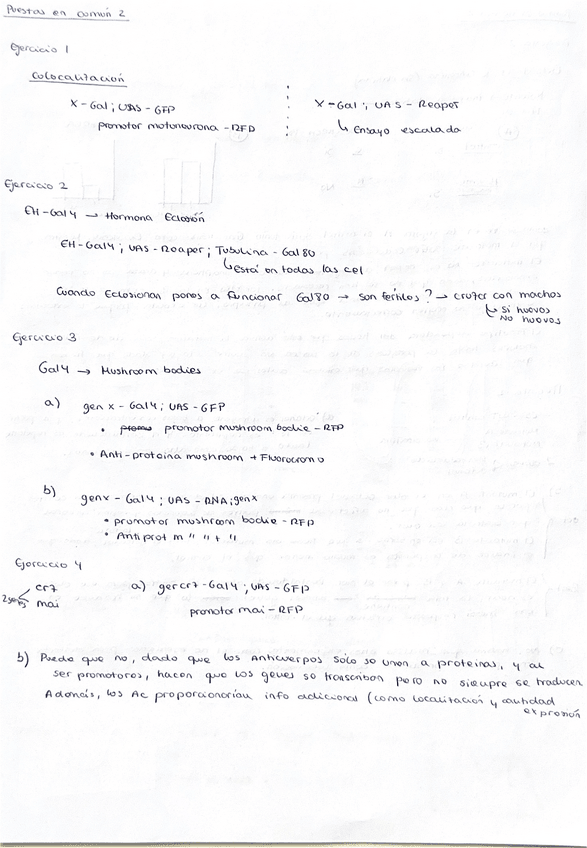 Puestas en común 2
Ejercicio 1
Colocalización
X-Gal; UAS-GFP
promotor motoneurona-RFD
X-Gal; UAS-Reaper
↳ Ensayo escalada
Ejercicio 2
EH-Gal4 → Hormona Eclosión
EH-Gal4; UAS-Reaper; Tubulina-Gal80
↳ está en todas las cel
Cuando Eclosionan pones a funcionar Gal80 → son fértiles? → cruzar con machos
↳ Si huevos
No huevos
Ejercicio 3
Gal4 → Mushroom bodies
a) gen x-Gal4; UAS-GFP
• promotor mushroom bodie-RFP
• Anti-proteina mushroom + Fluorocromo
b) genx-Gal4; UAS-RNAi genx
• promotor mushroom bodie-RFP
• Antiprot m " " + "
Ejercicio 4
2genes
cr7
mai
a) gen cr7-Gal4; UAS-GFP
promotor mai-RFP
b) Puede que no, dado que los Anticuerpos sólo se unen a proteínas, y al
ser promotores, hacen que los genes se transcriban pero no siempre se traducen
Además, los Ac proporcionarían info adicional (como localización y cantidad
expresión